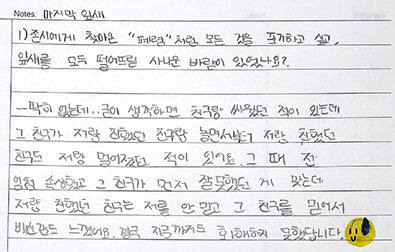 Notes. 마지막 잎새
1) 존시에게 찾아온 "폐렴"처럼 모든 것을 포기하고 싶고,
잎새를 모두 떨어뜨릴 사나운 바람이 있었나요?
-딱히 없는데.. 굳이 생각하면 친구랑 싸웠던 적이 있는데
그 친구가 저랑 친했던 친구랑 놀면서부터 저랑 친했던
친구도 저랑 멀어졌던 적이 있어요. 그 때 전
엄청 속상했고 그 친구가 먼저 잘못했던 게 맞는데
저랑 친했던 친구는 저를 안 믿고 그 친구를 믿어서
배신감도 느꼈어요. 결국 지금까지도 화해하지 못했답니다.